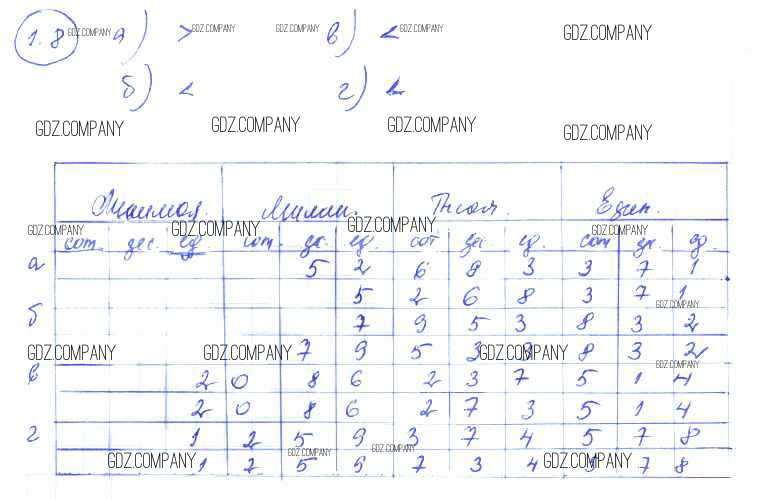 1.8 GDZ.COMPANY а) > GDZ.COMPANY в) < GDZ.COMPANY GDZ.COMPANY
б) < г) <
GDZ.COMPANY GDZ.COMPANY GDZ.COMPANY GDZ.COMPANY
Миллион. Тысяч. Един.
GDZ.COMPANY GDZ.COMPANY GDZ.COMPANY GDZ.COMPANY
сот. дес. ед. сот. дес. ед. сот дес. ед. сот дес. ед.
а 5 2 6 8 3 3 7 1
5 2 6 8 3 7 1
GDZ.COMPANY
б 7 9 5 3 8 3 2
GDZ.COMPANY GDZ.COMPANY 7 9 5 3 GDZ.COMPANY 8 3 2
GDZ.COMPANY
в 2 0 8 6 2 3 7 5 1 4
2 0 8 6 2 7 3 5 1 4
г 1 2 5 9 3 7 4 5 7 8
GDZ.COMPANY GDZ.COMPANY GDZ.COMPANY GDZ.COMPANY
1 2 5 9 7 3 4 5 7 8